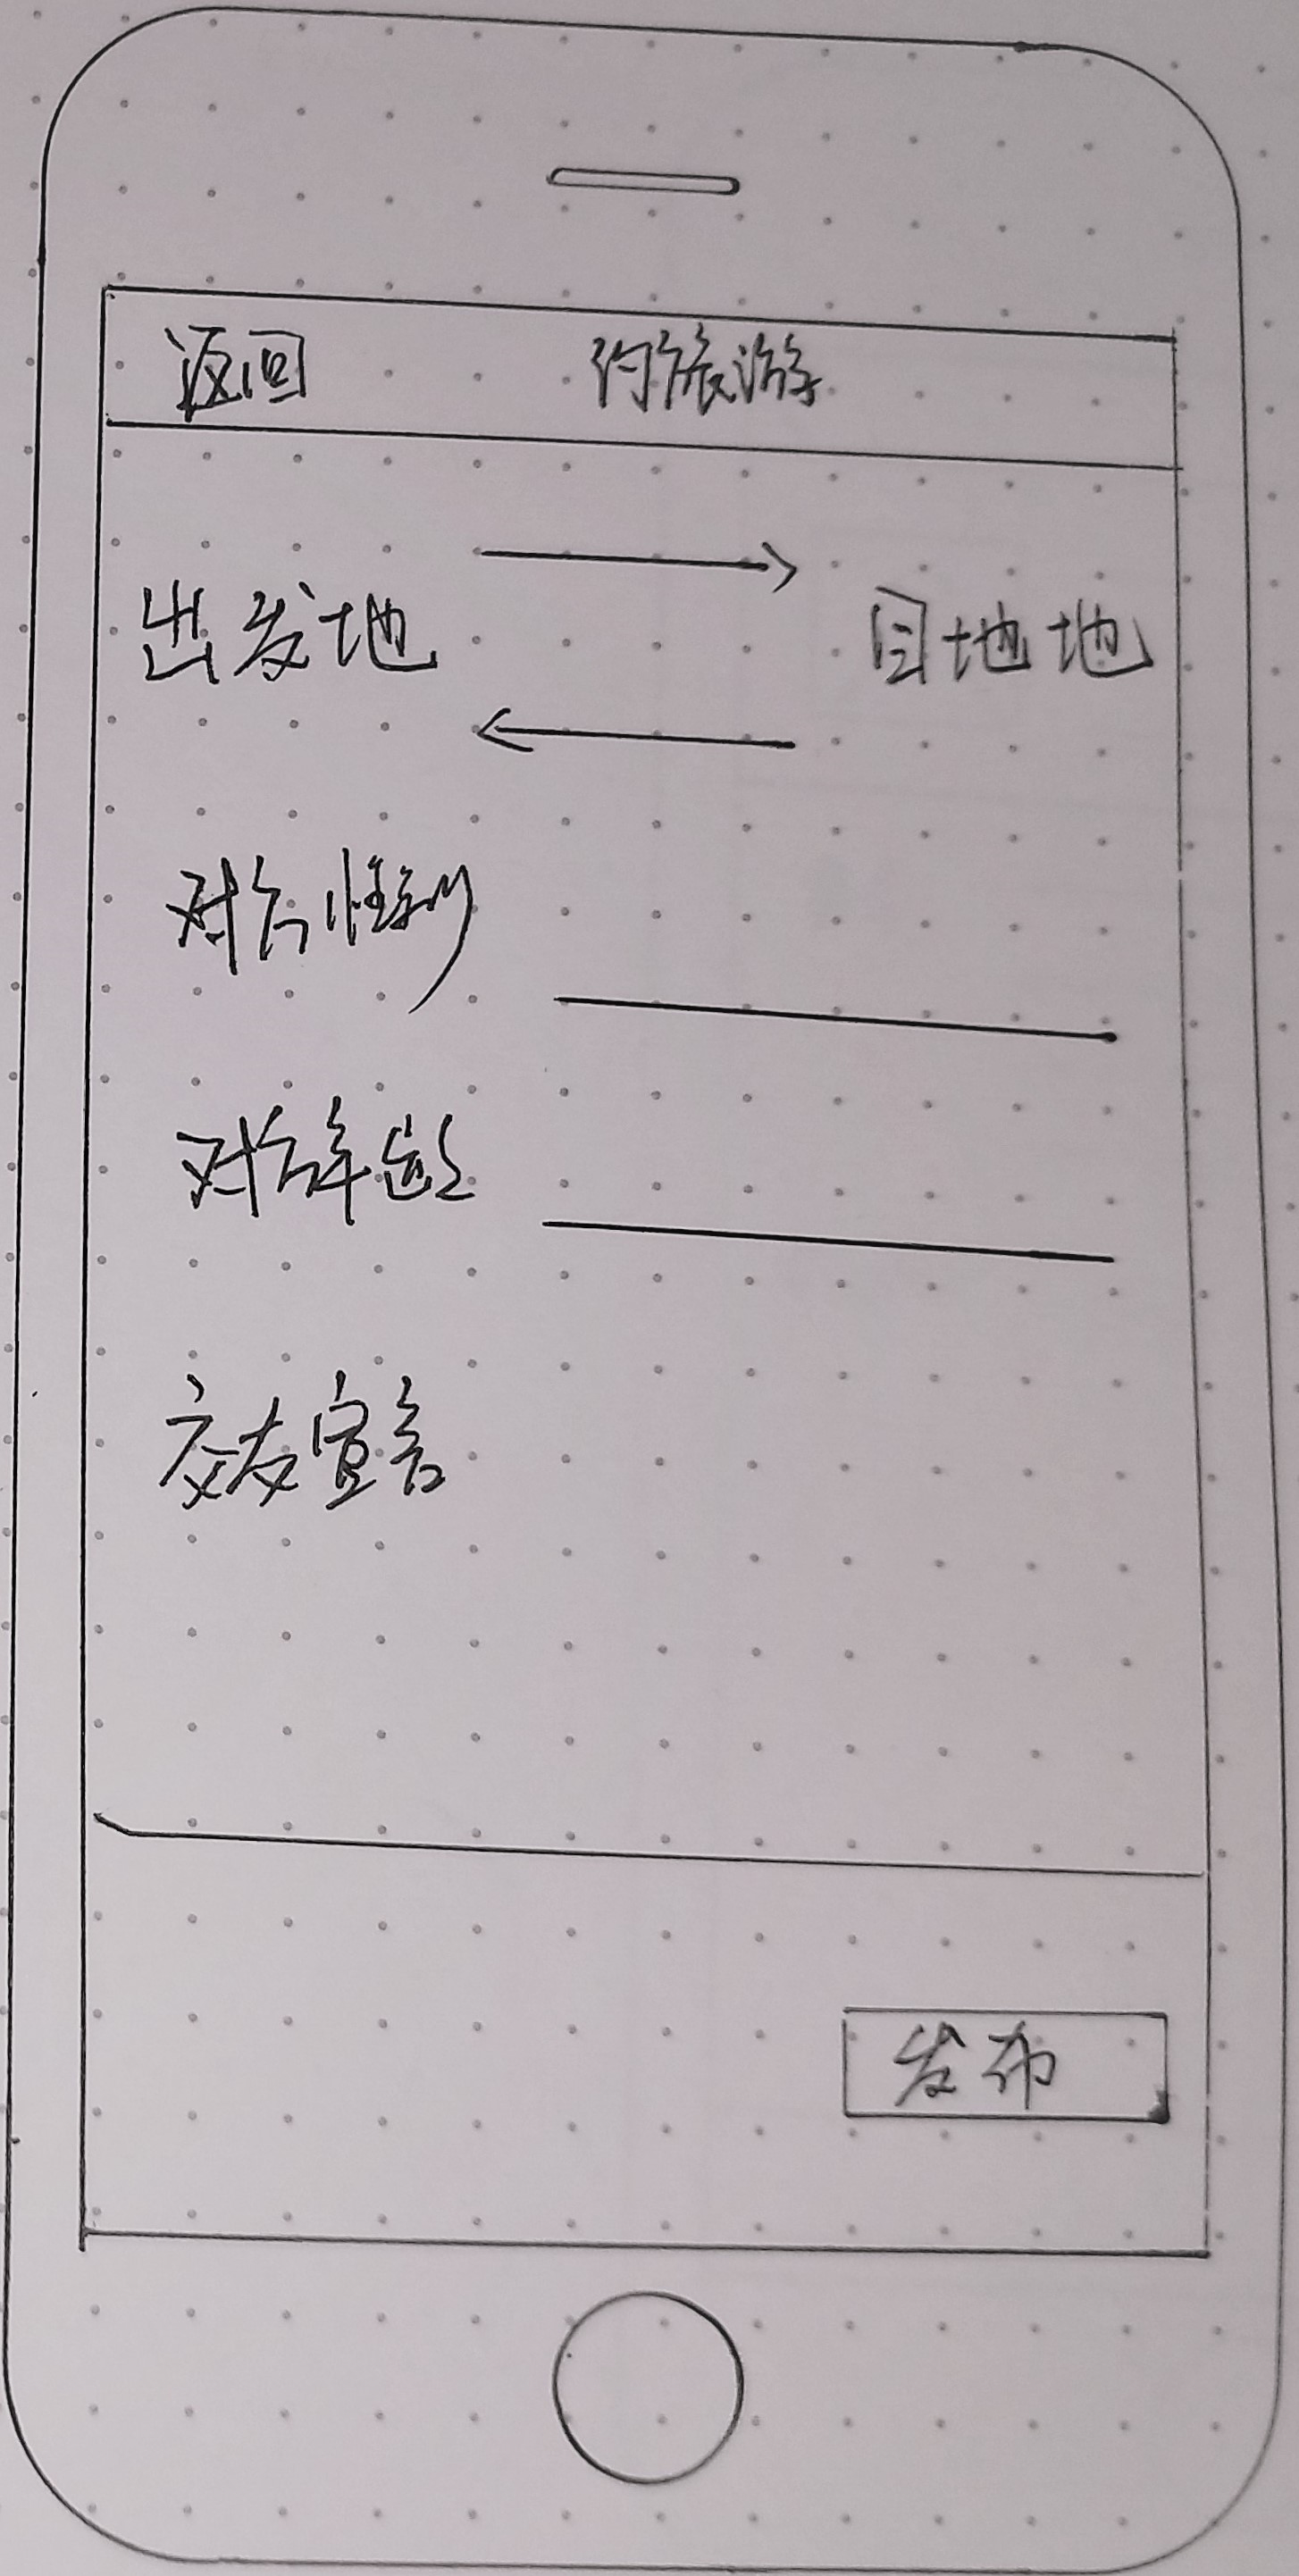 返回 约旅游
出发地 目地地
对方性别
对方年龄
交友宣言
发布